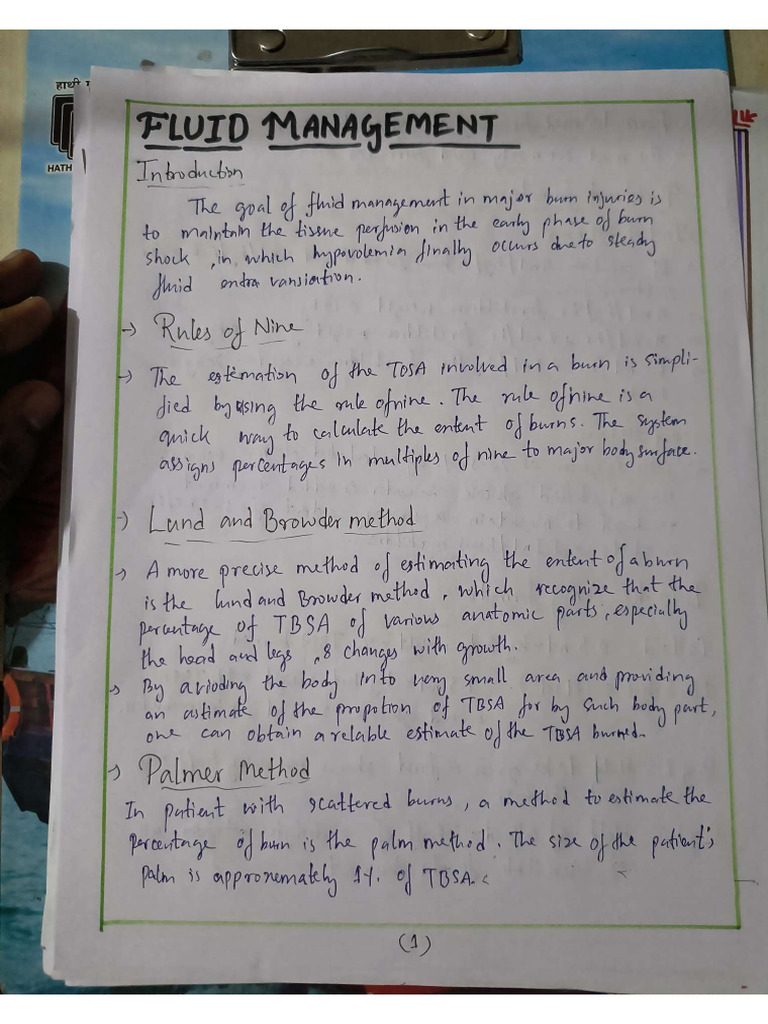 हाथी
HATH
FLUID MANAGEMENT
Introduction
The goal of fluid management in major burn injuries is
to maintain the tissue perfusion in the early phase of burn
shock, in which hypovolemia finally occurs due to steady
fluid entra vansiation.
→ Rules of Nine
→ The estemation of the TOSA involved in a burn is simpli-
fied by using the rule of nine. The rule of nine is a
quick way to calculate the entent of burns. The system
assigns percentages in multiples of nine to major body surface.
→ Lund and Browder method
→ A more precise method of estimating the entent of a burn
is the lund and Browder method, which recognize that the
percentage of TBSA of various anatomic parts, especially
the head and legs, & changes with growth.
→ By avioding the body into very small area and providing
an astimate of the propotion of TBSA for by such body part,
one can obtain a relable estimate of the TBSA burned.
→ Palmer Method
In patient with scattered burns, a method to estimate the
percentage of burn is the palm method. The size of the patient's
palm is approxemately 1%. of TBSA.
(1)